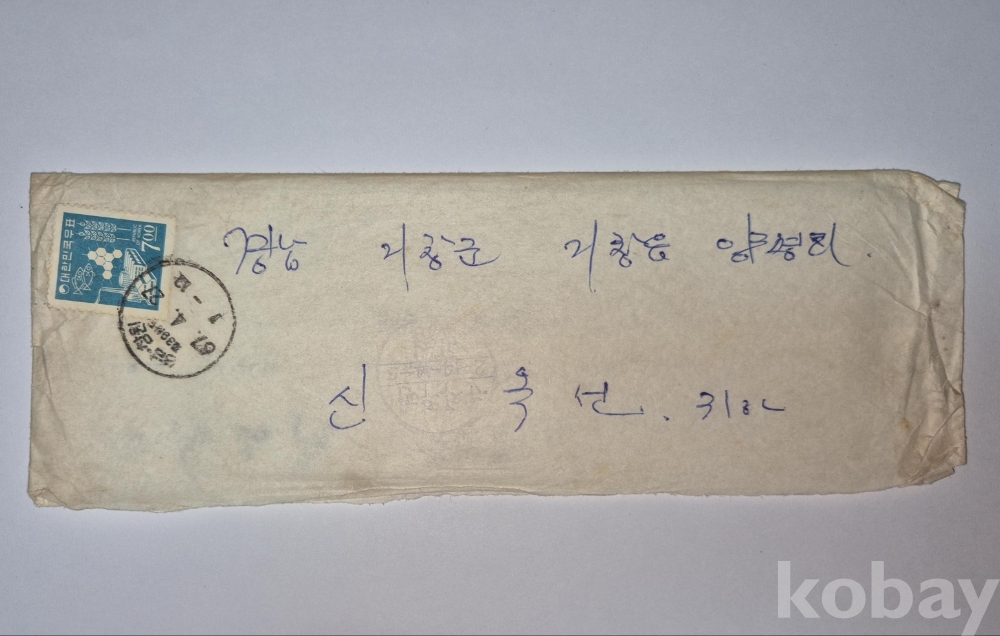 대한민국우표
7.00
67.4.27
1-12
경남 거창군 거창읍
신 옥 선. 귀하
kobay